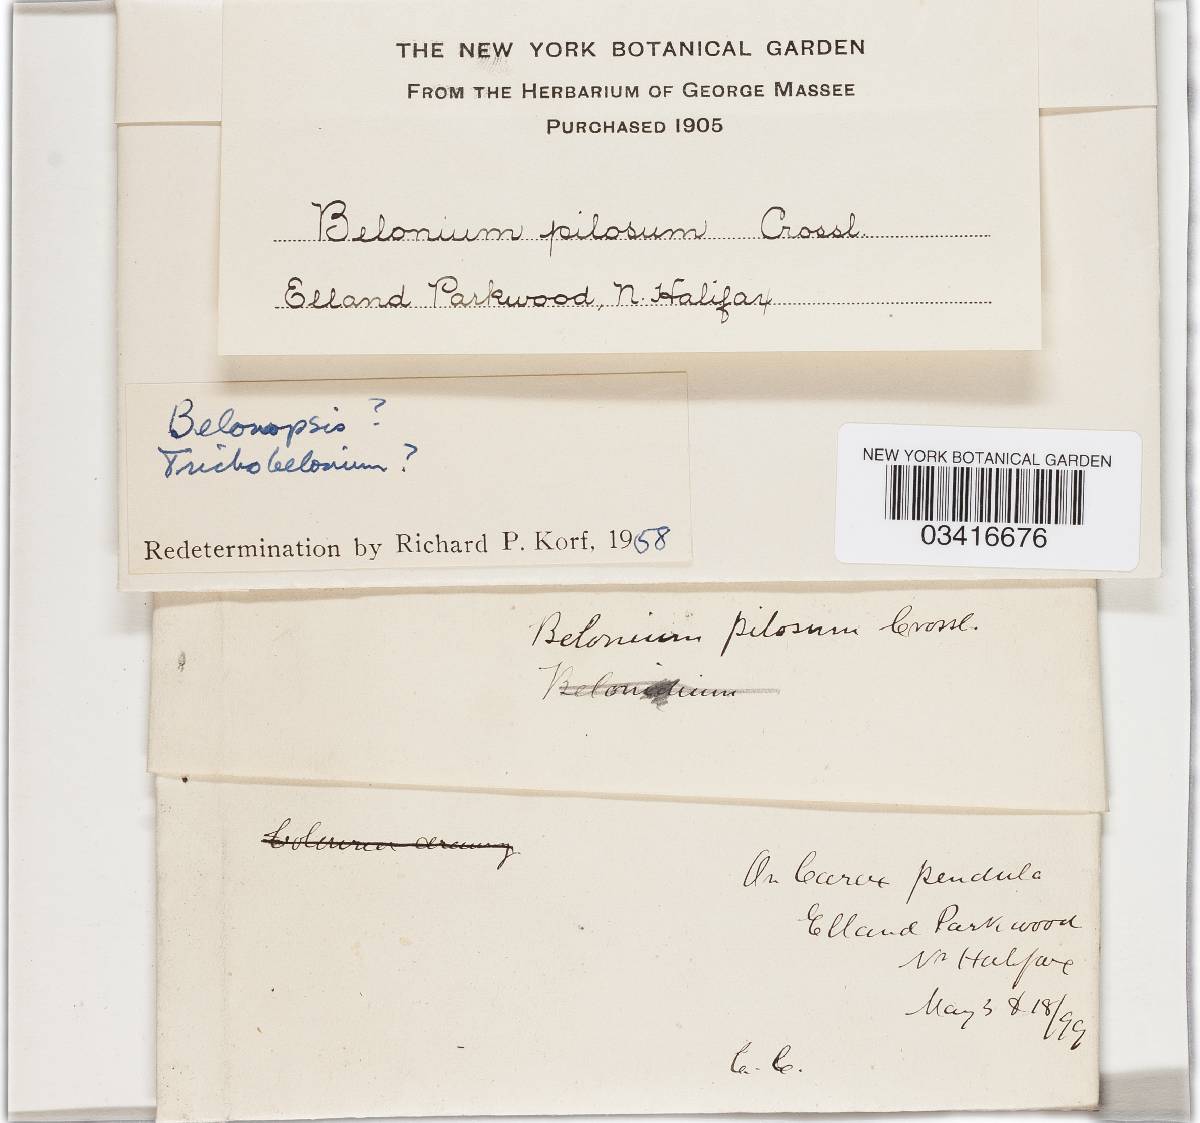 THE NEW YORK BOTANICAL GARDEN
FROM THE HERBARIUM OF GEORGE MASSEE
PURCHASED 1905
Belonium pilosum Crossl.
Elland Parkwood, N. Halifax
Belonopsis ?
Trichobelonium ?
Redetermination by Richard P. Korf, 1958
NEW YORK BOTANICAL GARDEN
03416676
Belonium pilosum Crossl.
Belonidium
On Carex pendula
Elland Parkwood
Nr Halifax
May 3 & 18/99
C. C.